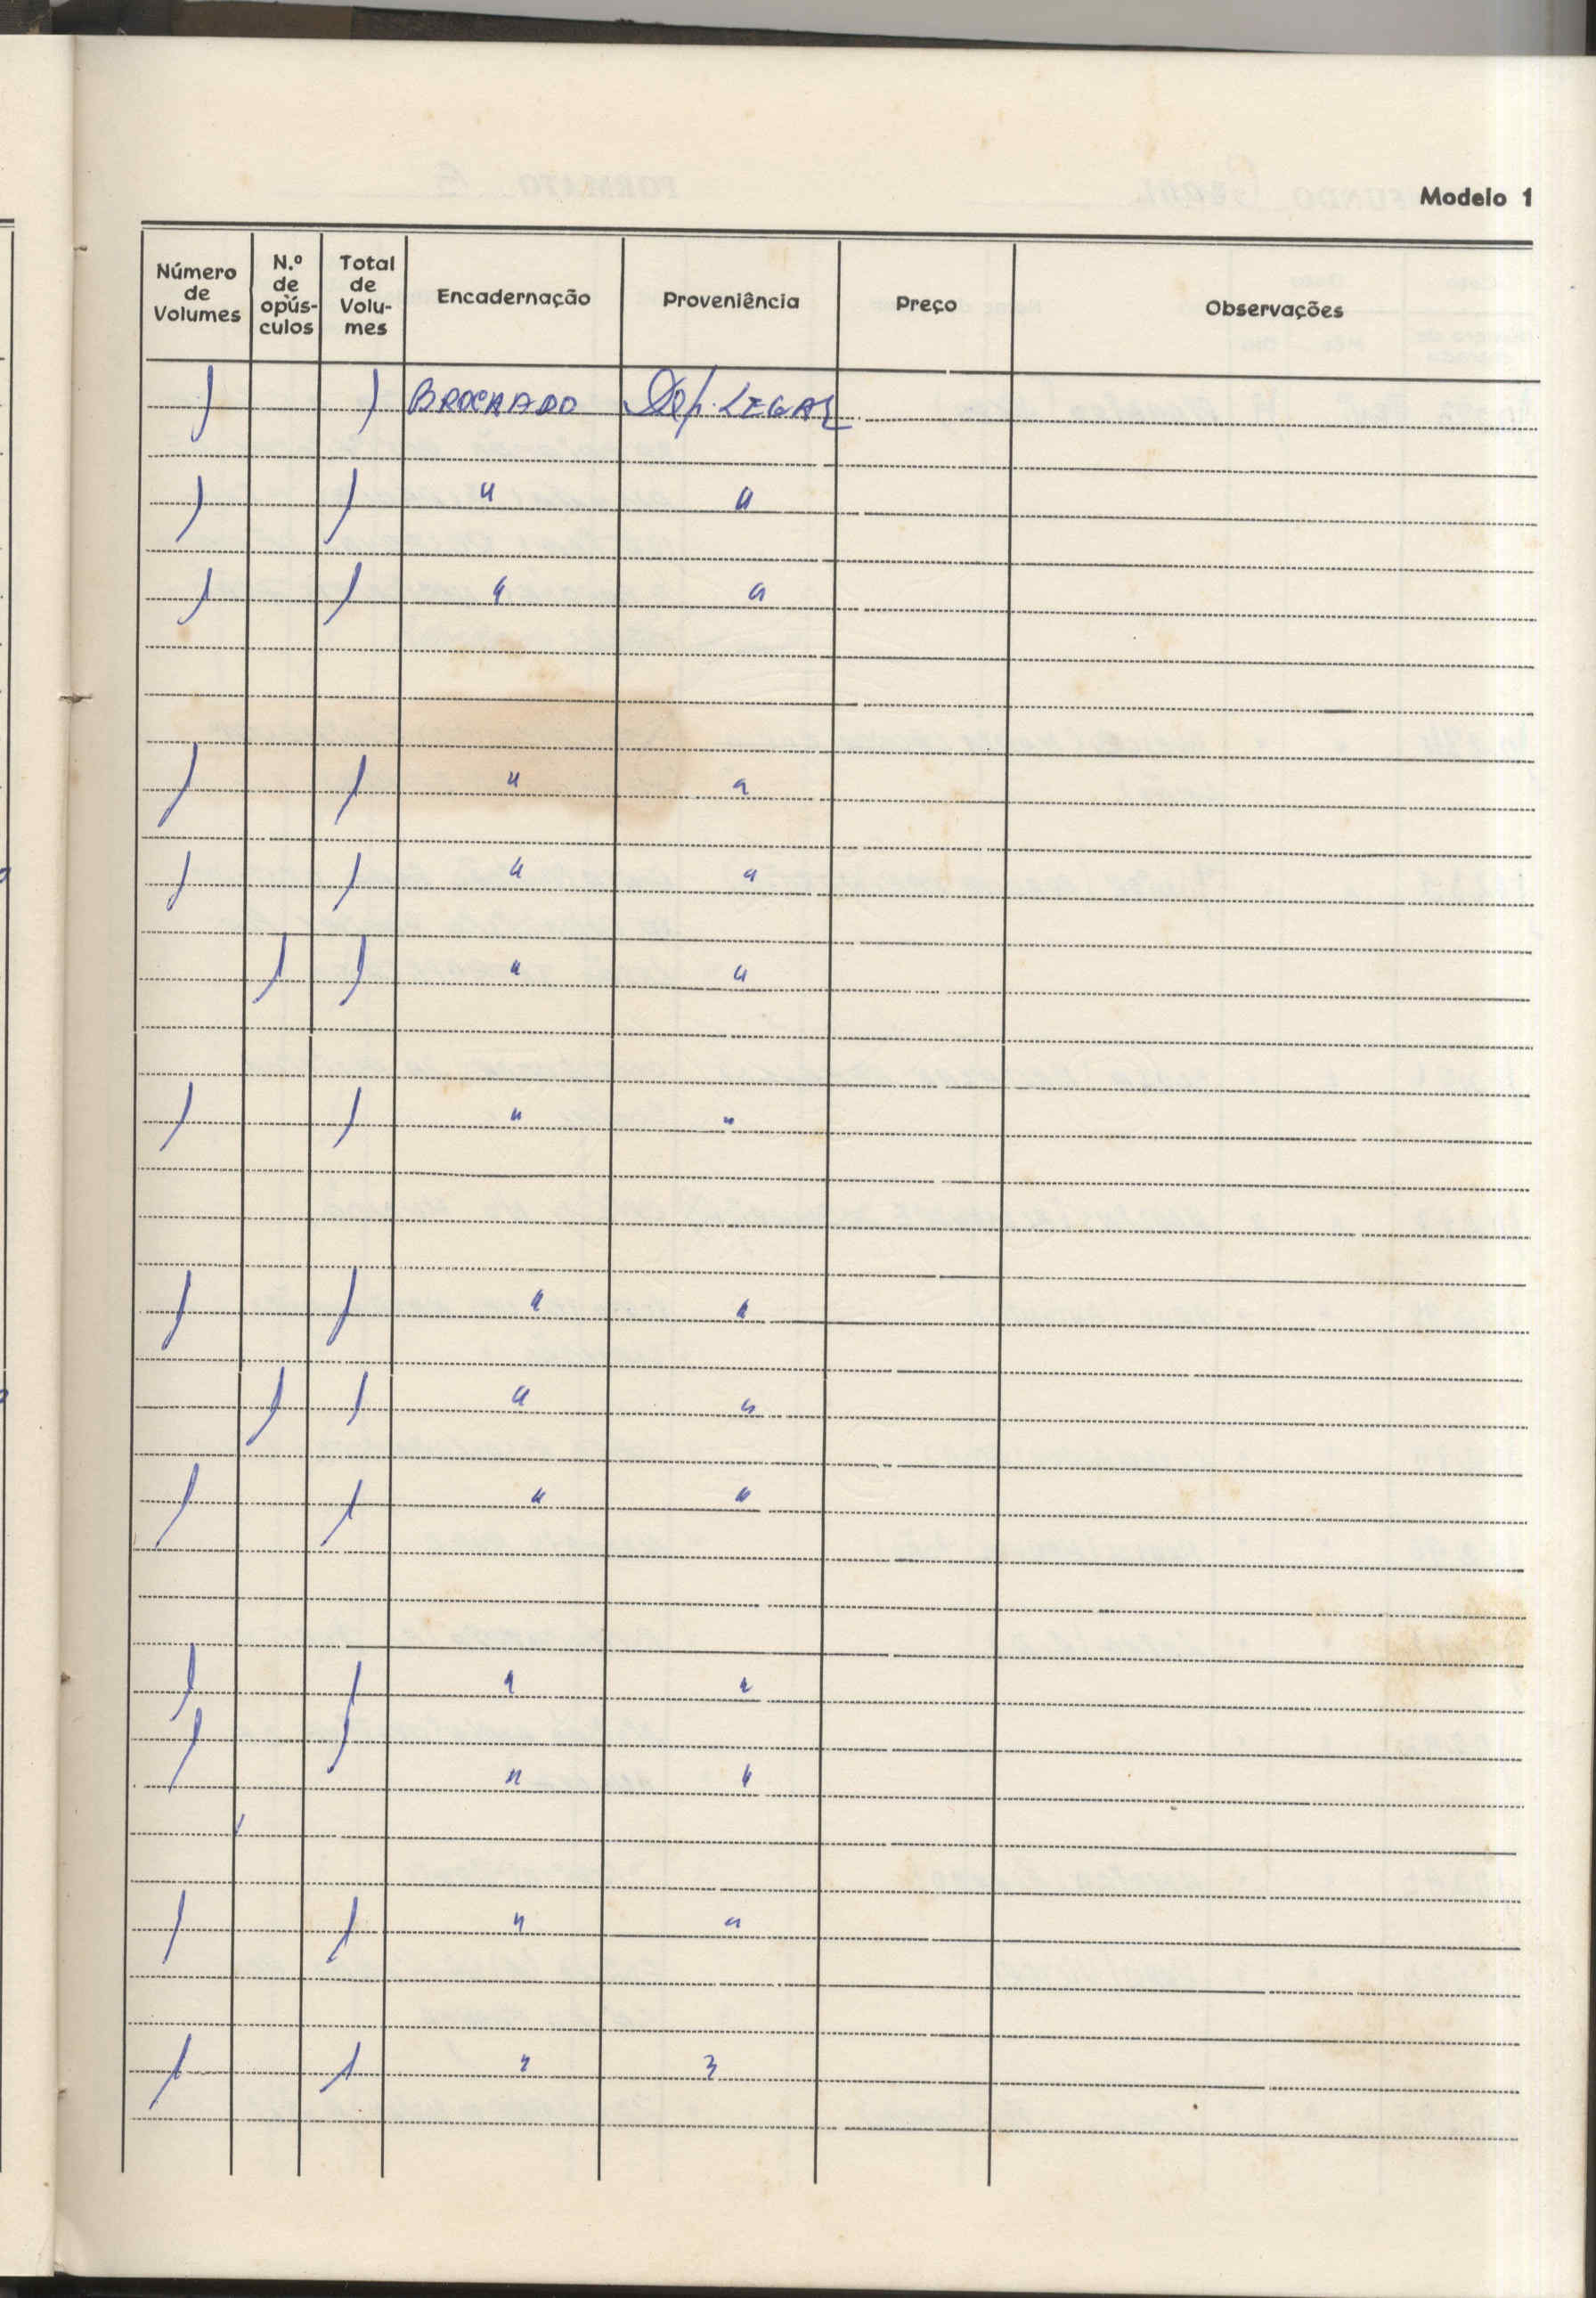 Modelo 1
Número de Volumes | N.º de opús-culos | Total de Volu-mes | Encadernação | Proveniência | Preço | Observações
1 | | 1 | BROCHADO | Dep. LEGAL
1 | | 1 | " | "
1 | | 1 | " | "
1 | | 1 | " | "
1 | | 1 | " | "
| 1 | 1 | " | "
1 | | 1 | " | "
1 | | 1 | " | "
| 1 | 1 | " | "
1 | | 1 | " | "
1 | | 1 | " | "
1 | | 1 | " | "
1 | | 1 | " | "
1 | | 1 | " | "